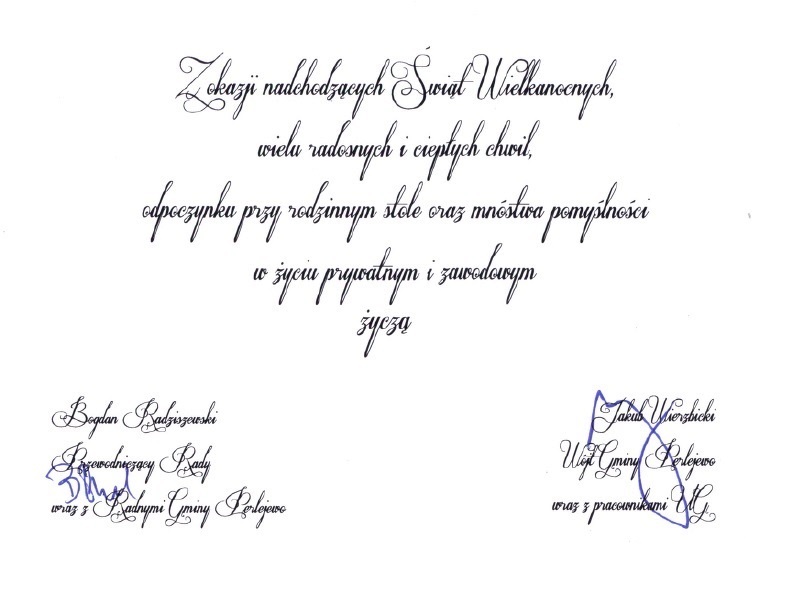 Z okazji nadchodzących Świąt Wielkanocnych,
wielu radosnych i ciepłych chwil,
odpoczynku przy rodzinnym stole oraz mnóstwa pomyślności
w życiu prywatnym i zawodowym
życzą
Bogdan Radziszewski
Przewodniczący Rady
wraz z Radnymi Gminy Perlejewo
Jakub Wierzbicki
Wójt Gminy Perlejewo
wraz z pracownikami UG